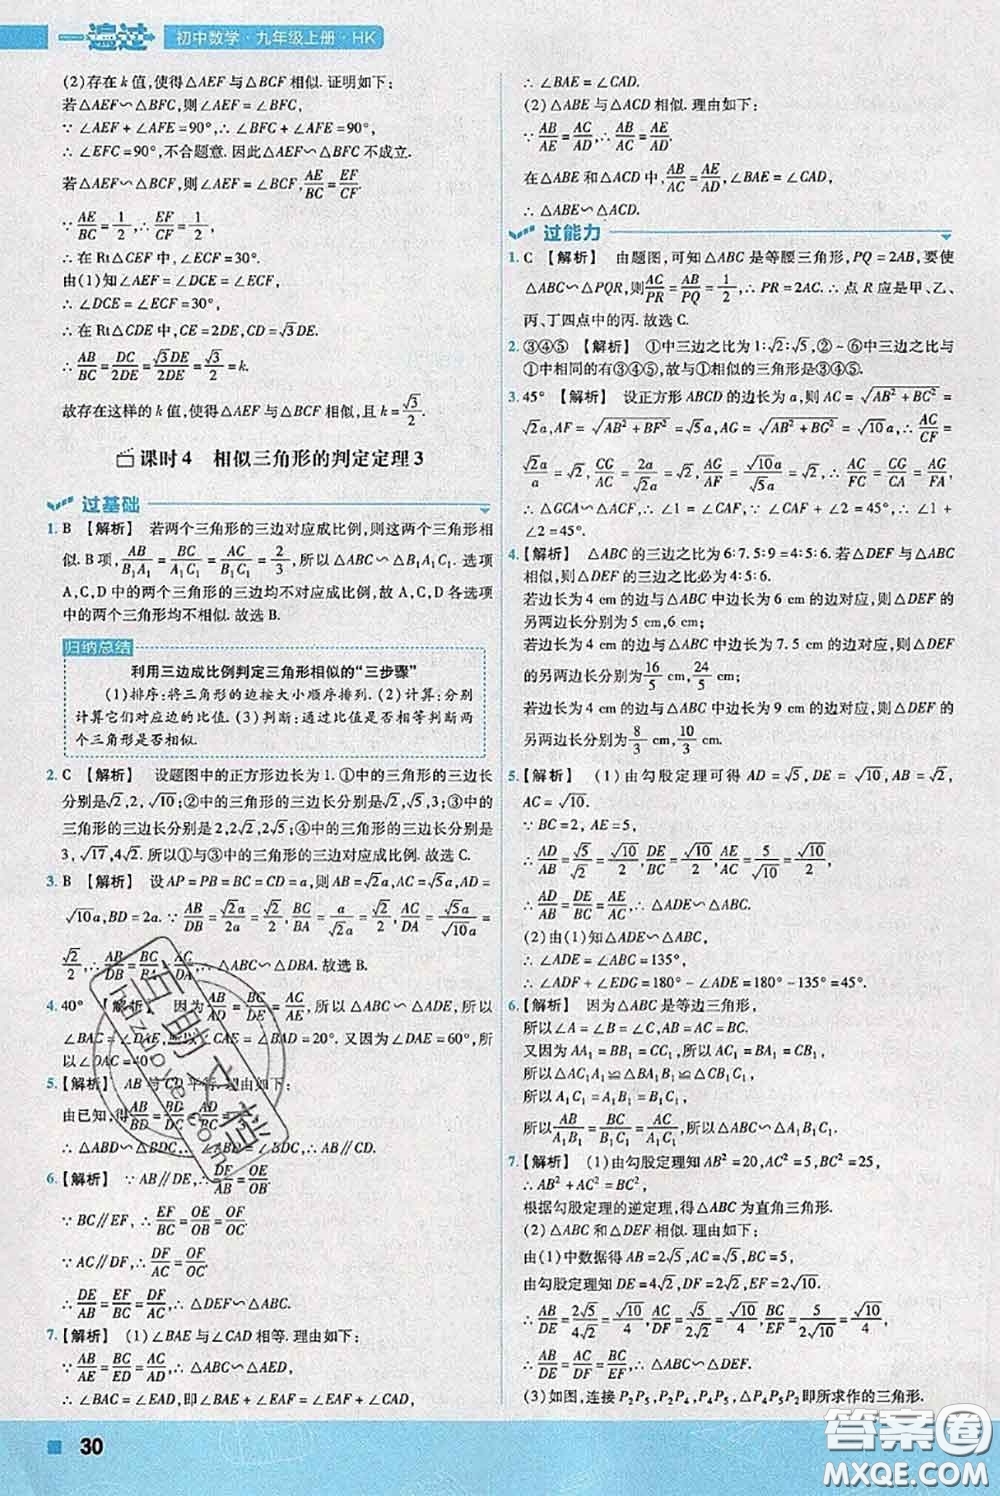 一遍过 初中数学·九年级上册·HK
(2)存在 k 值,使得△AEF 与△BCF 相似. 证明如下:
若△AEF∽△BFC,则∠AEF=∠BFC,
∵ ∠AEF+∠AFE=90°,∠BFC+∠AFE=90°,
∴ ∠EFC=90°,不合题意. 因此△AEF∽△BFC 不成立.
若△AEF∽△BCF,则∠AEF=∠BCF, AE/BC=EF/CF.
∵ AE/BC=1/2,∴ EF/CF=1/2,
∴ 在 Rt△CEF 中,∠ECF=30°.
由(1)知∠AEF=∠DCE=∠ECF,
∴ ∠DCE=∠ECF=30°,
∴ 在 Rt△CDE 中,CE=2DE,CD=√3DE.
∴ AB/BC=DC/2DE=√3DE/2DE=√3/2=k.
故存在这样的 k 值,使得△AEF 与△BCF 相似,且 k=√3/2.
课时4 相似三角形的判定定理3
过基础
1. B 【解析】 若两个三角形的三边对应成比例,则这两个三角形相
似. B 项,AB/B₁A₁=BC/A₁C₁=AC/B₁C₁=2/3,所以△ABC∽△B₁A₁C₁. 选项
A,C,D 中的两个三角形的三边均不对应成比例,故 A,C,D 各选项
中的两个三角形均不相似. 故选 B.
归纳总结
利用三边成比例判定三角形相似的“三步骤”
(1)排序:将三角形的边按大小顺序排列. (2)计算:分别
计算它们对应边的比值. (3)判断:通过比值是否相等判断两
个三角形是否相似.
2. C 【解析】 设题图中的正方形边长为 1. ①中的三角形的三边长
分别是√2,2,√10;②中的三角形的三边长分别是√2,√5,3;③中的
三角形的三边长分别是2,2√2,2√5;④中的三角形的三边长分别是
3,√17,4√2. 所以①与③中的三角形的三边对应成比例. 故选 C.
3. B 【解析】 设 AP=PB=BC=CD=a,则 AB=√2a,AC=√5a,AD=
√10a,BD=2a. ∵ AB/DB=√2a/2a=√2/2,BC/BA=a/√2a=√2/2,AC/DA=√5a/√10a=
√2/2,∴ AB/DB=BC/BA=AC/DA,∴ △ABC∽△DBA. 故选 B.
4. 40° 【解析】 因为AB/AD=BC/DE=AC/AE,所以△ABC∽△ADE,所以
∠BAC=∠DAE,所以∠CAE=∠BAD=20°. 又因为∠DAE=60°,所
以∠DAC=40°.
5. 【解析】 AB 与 CD 平行. 理由如下:
由已知,得AB/BD=BD/DC=AD/BC=
∴ △ABD∽△BDC,∴ ,∴ AB∥CD.
6. 【解析】 ∵ AB∥DE,∴ DE/AB=OE/OB.
∵ BC∥EF,∴ EF/BC=OE/OB=OF/OC.
∵ AC∥DF,∴ DF/AC=OF/OC.
∴ DE/AB=EF/BC=DF/AC,∴ △DEF∽△ABC.
7. 【解析】 (1)∠BAE 与∠CAD 相等. 理由如下:
∵ AB/AE=BC/ED=AC/AD,∴ △ABC∽△AED,
∴ ∠BAC=∠EAD,即∠BAE+∠EAF=∠EAF+∠CAD,
∴ ∠BAE=∠CAD.
(2)△ABE 与△ACD 相似. 理由如下:
∵ AB/AE=AC/AD,∴ AB/AC=AE/AD.
在△ABE 和△ACD 中,AB/AC=AE/AD,∠BAE=∠CAD,
∴ △ABE∽△ACD.
过能力
1. C 【解析】 由题图,可知△ABC 是等腰三角形,PQ=2AB,要使
△ABC∽△PQR,则AC/PR=AB/PQ=1/2,∴ PR=2AC. ∴ 点 R 应是甲、乙、
丙、丁四点中的丙. 故选 C.
2. ③④⑤ 【解析】 ①中三边之比为 1∶√2∶√5,②~⑥中三边之比与
①中相同的有③④⑤,故与①相似的三角形是③④⑤.
3. 45° 【解析】 设正方形 ABCD 的边长为 a,则 AC=√(AB²+BC²)=
√2a,AF=√(AB²+BF²)=√5a,AG=√(AB²+BG²)=√10a,∴ AC/CF=
√2a/a=√2,CG/AC=2a/√2a=√2,AG/FA=√10a/√5a=√2,∴ AC/FC=CG/AC=AG/FA,
∴ △GCA∽△ACF,∴ ∠1=∠CAF,∵ ∠CAF+∠2=45°,∴ ∠1+
∠2=45°.
4. 【解析】 △ABC 的三边之比为 6∶7.5∶9=4∶5∶6. 若△DEF 与△ABC
相似,则△DEF 的三边之比必为 4∶5∶6.
若边长为 4 cm 的边与△ABC 中边长为 6 cm 的边对应,则△DEF 的
另两边长分别为 5 cm,6 cm;
若边长为 4 cm 的边与△ABC 中边长为 7.5 cm 的边对应,则△DEF
的另两边长分别为16/5 cm,24/5 cm;
若边长为 4 cm 的边与△ABC 中边长为 9 cm 的边对应,则△DEF 的
另两边长分别为8/3 cm,10/3 cm.
5. 【解析】 (1)由勾股定理可得 AD=√5,DE=√10,AB=√2,
AC=√10.
∵ BC=2,AE=5,
∴ AD/AB=√5/√2=√10/2,DE/BC=√10/2,AE/AC=5/√10=√10/2,
∴ AD/AB=DE/BC=AE/AC,∴ △ADE∽△ABC.
(2)由(1)知△ADE∽△ABC,
∴ ∠ADE=∠ABC=135°,
∴ ∠ADF+∠EDG=180°-∠ADE=180°-135°=45°.
6. 【解析】 因为△ABC 是等边三角形,
所以∠A=∠B=∠C,AB=BC=CA.
又因为 AA₁=BB₁=CC₁,所以 AC₁=BA₁=CB₁,
所以△AA₁C₁≌△BB₁A₁≌△CC₁B₁,
所以 A₁C₁=A₁B₁=B₁C₁,
所以AB/A₁B₁=BC/B₁C₁=AC/A₁C₁,所以△ABC∽△A₁B₁C₁.
7. 【解析】 (1)由勾股定理知 AB²=20,AC²=5,BC²=25,
∴ AB²+AC²=BC²,
根据勾股定理的逆定理,得△ABC 为直角三角形.
(2)△ABC 和△DEF 相似. 理由如下:
由(1)中数据得 AB=2√5,AC=√5,BC=5,
由勾股定理知 DE=4√2,DF=2√2,EF=2√10.
∴ AB/DE=2√5/4√2=√10/4,AC/DF=√5/2√2=√10/4,BC/EF=5/2√10=√10/4,
∴ AB/DE=AC/DF=BC/EF,∴ △ABC∽△DEF.
(3)如图,连接 P₂P₅,P₂P₄,P₄P₅,△P₂P₄P₅即所求作的三角形.
30
百助文档
Baizhowe.com
答案圈
MXQE.COM